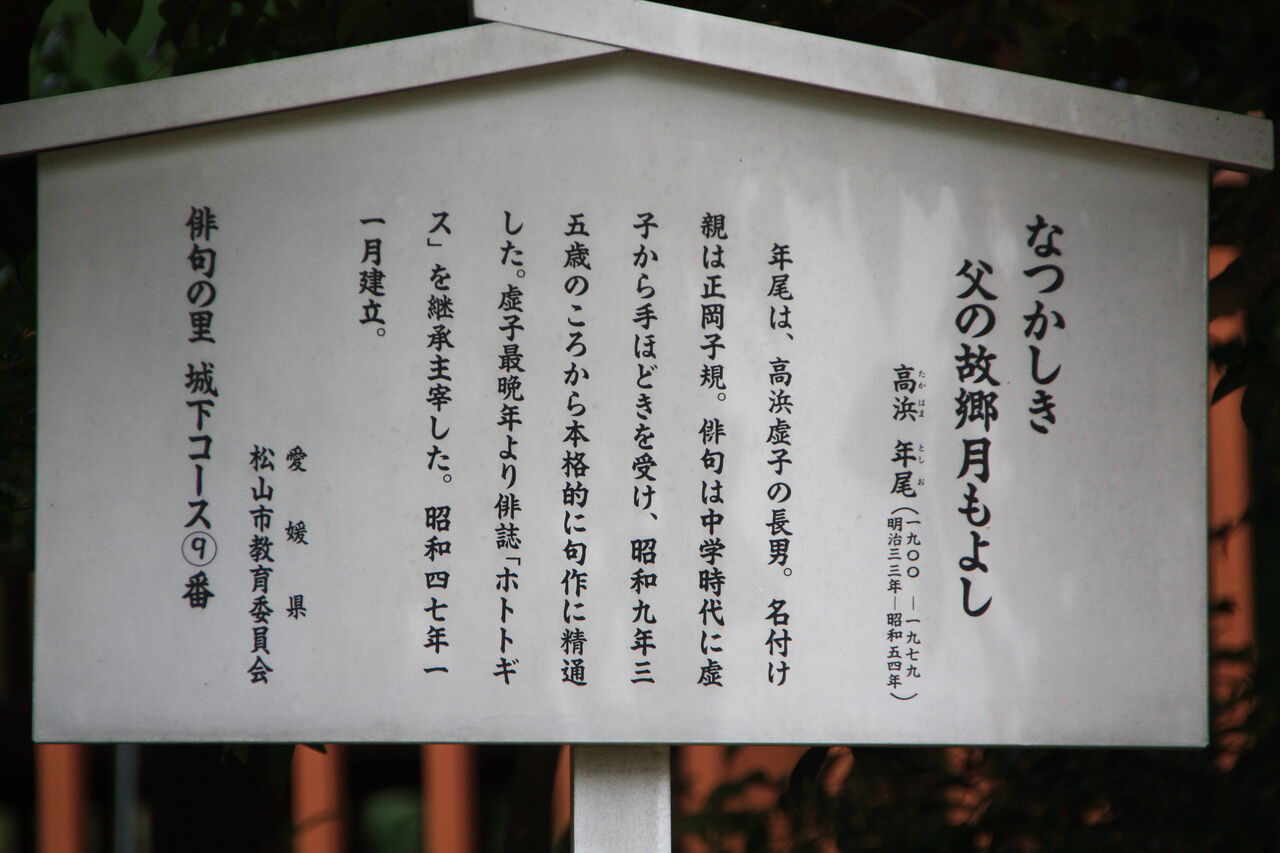 なつかしき
父の故郷月もよし
高浜 年尾(一九〇〇―一九七九
たかはま としお
明治三三年―昭和五四年)
年尾は、高浜虚子の長男。名付け
親は正岡子規。俳句は中学時代に虚
子から手ほどきを受け、昭和九年三
五歳のころから本格的に句作に精通
した。虚子最晩年より俳誌「ホトトギ
ス」を継承主宰した。昭和四七年一
一月建立。
愛媛県
松山市教育委員会
俳句の里 城下コース⑨番